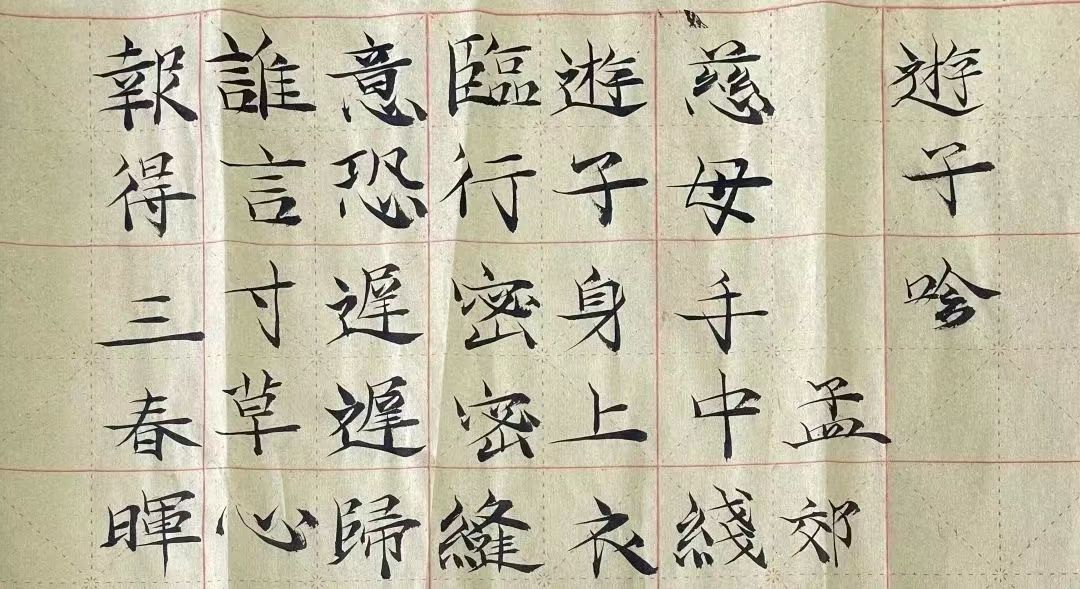 遊子吟
孟郊
慈母手中綫
遊子身上衣
臨行密密縫
意恐遲遲歸
誰言寸草心
報得三春暉